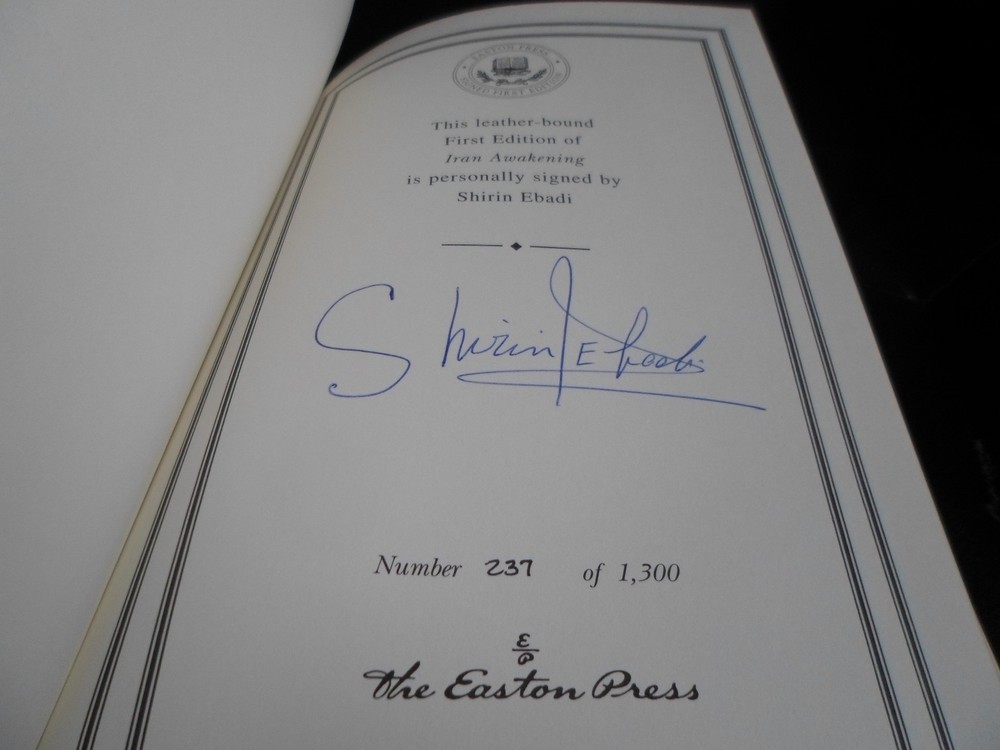 EASTON PRESS
SIGNED FIRST EDITION
This leather-bound
First Edition of
Iran Awakening
is personally signed by
Shirin Ebadi
Shirin Ebadi
Number 237 of 1,300
E
P
The Easton Press